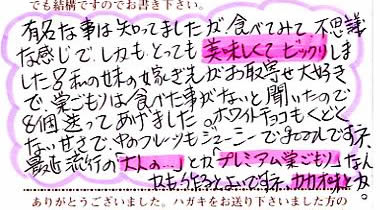 でも結構ですのでお書き下さい。
有名な事は知ってましたが食べてみて不思議
な感じで、しかもとっても美味しくてビックリしま
した。私の妹の嫁ぎ先がお取寄せ大好き
で、巣ごもりは食べた事がないと聞いたので
8個送ってあげました。ホワイトチョコもくどく
ない甘さで、中のフルーツもジューシーでgoodですネ。
最近流行の「大人の…」とか「プレミアム巣ごもり」なん
かも作るとよいですネ、カカオ味とか。
ありがとうございました。ハガキをお送り下さいました方の